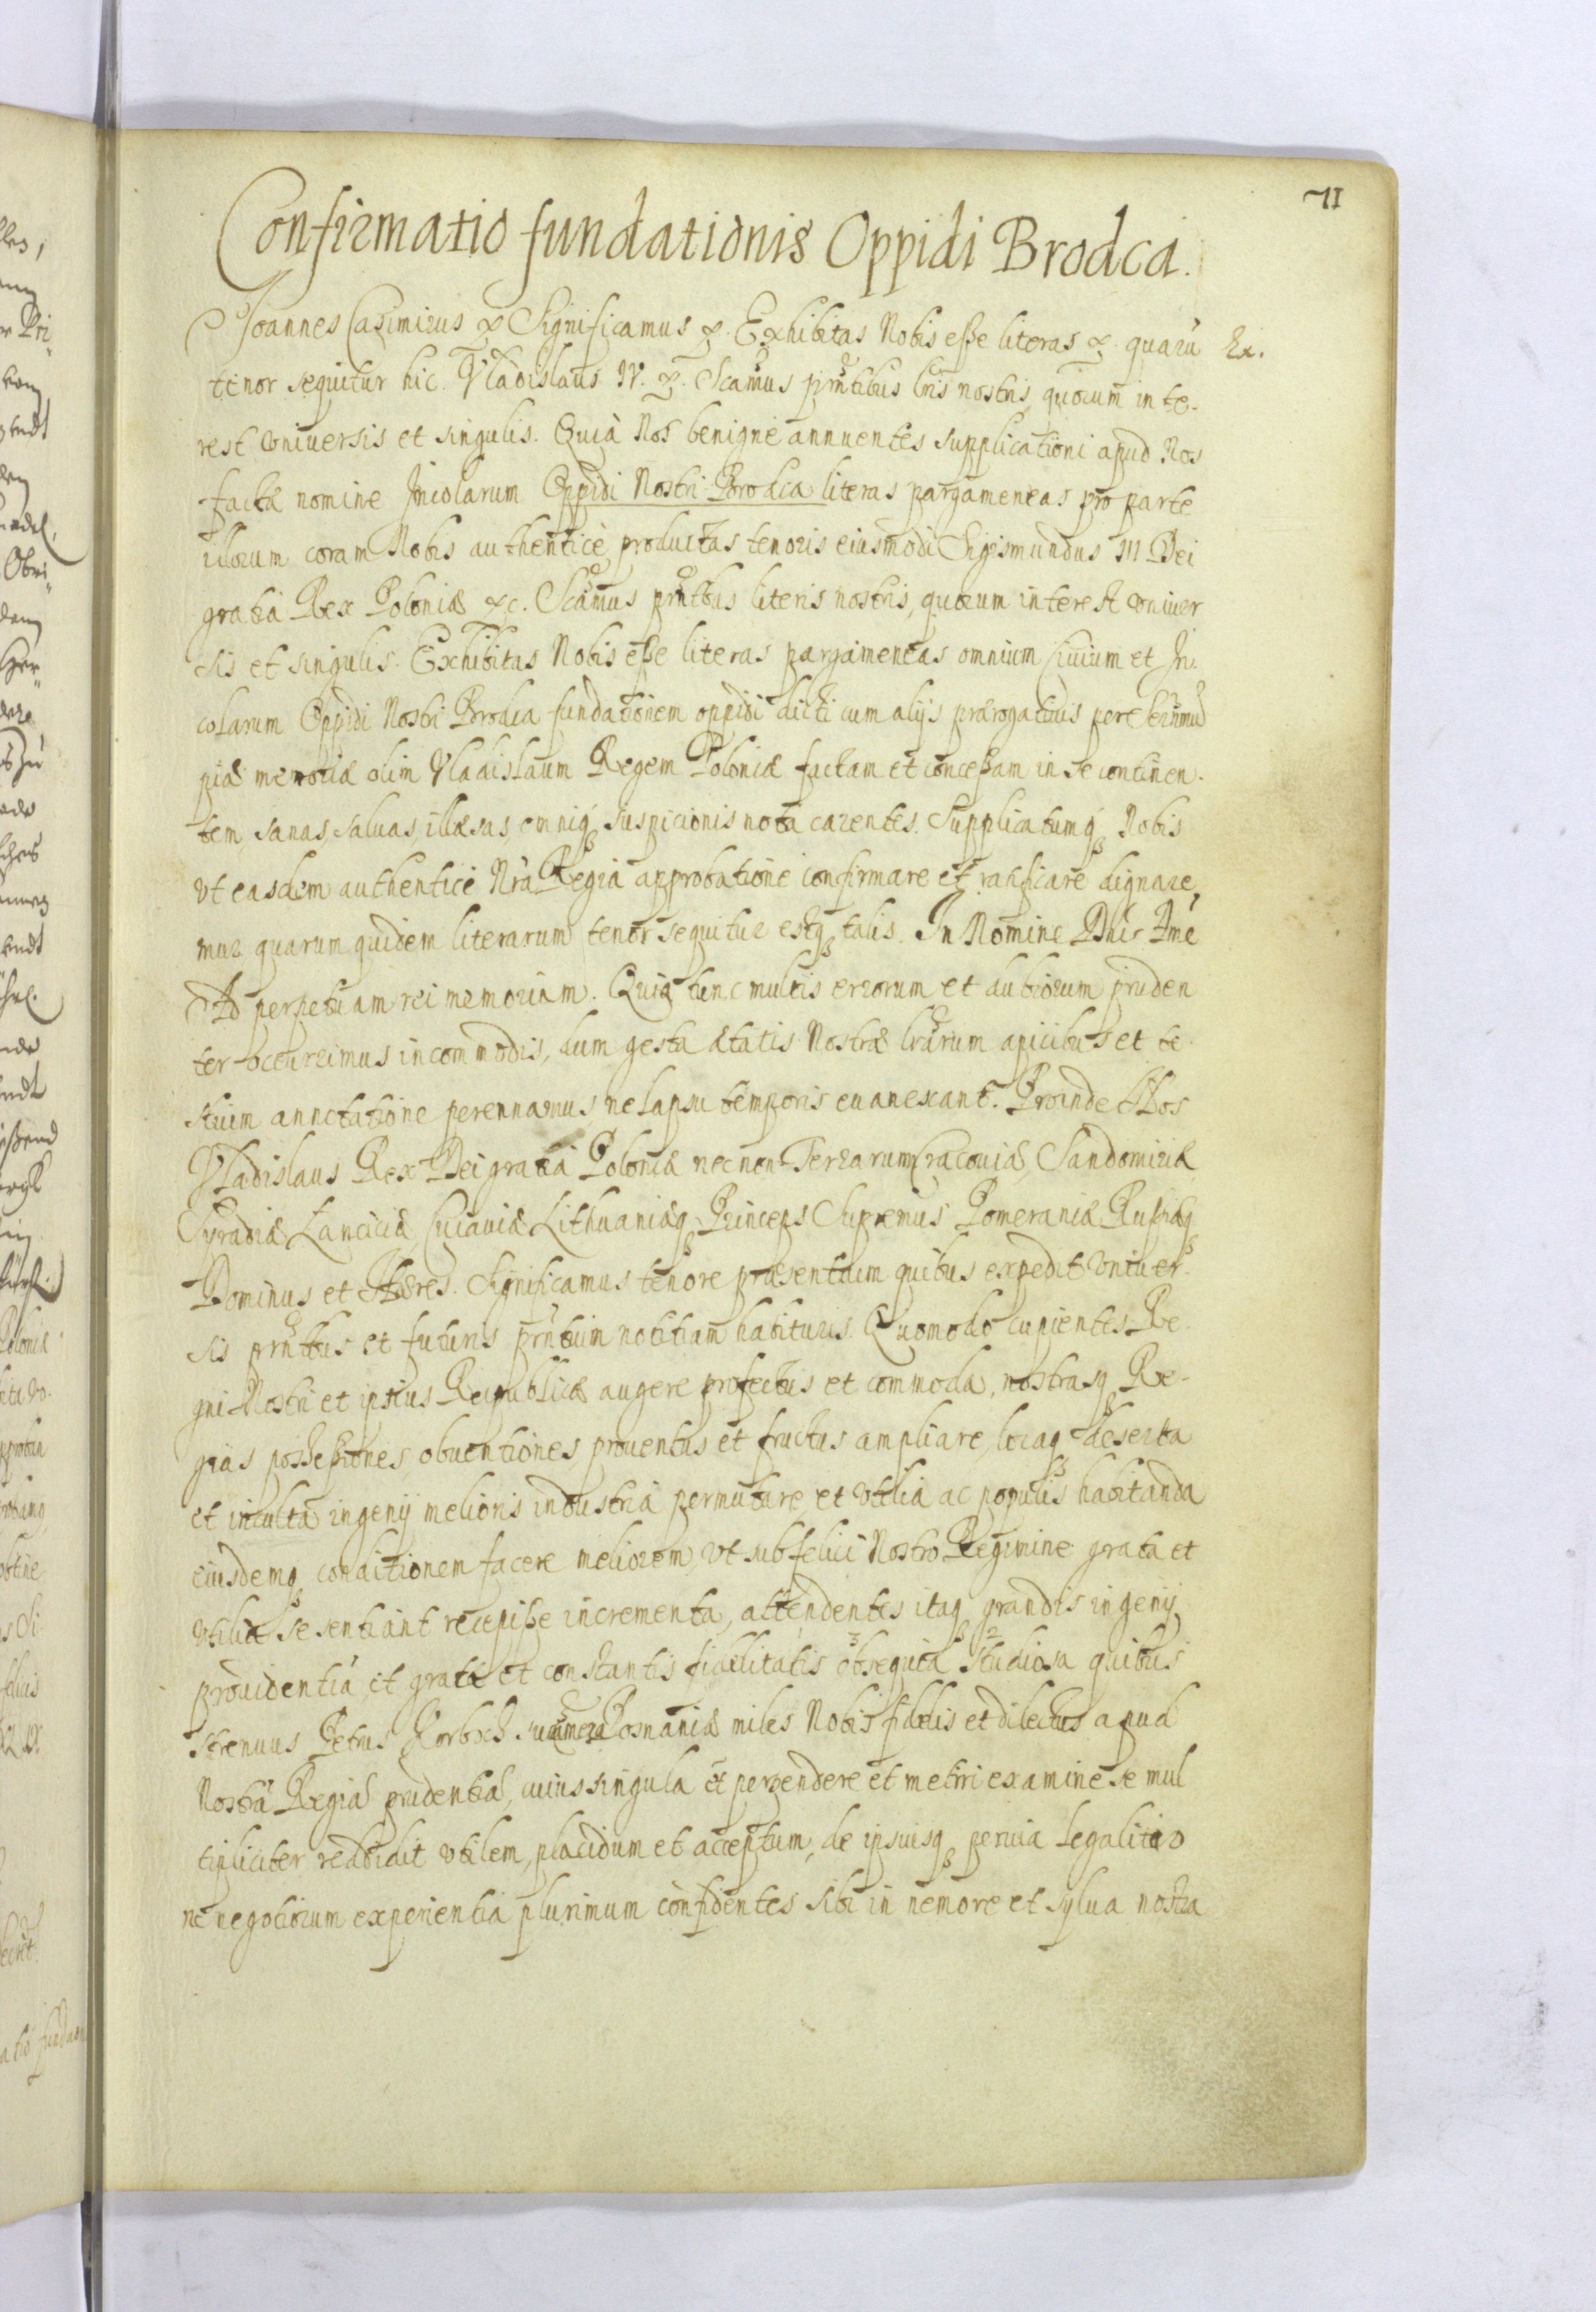 71
Confirmatio fundationis Oppidi Brodca.
Joannes Casimirus &. Significamus &. Exhibitas Nobis esse literas &. quarū Ex.
tenor sequitur hic. Vladislaus IV. &. Scamus pñtibus lris nostris quorum inte-
rest vniversis et singulis. Quià Nos benignè annuentes supplicationi apud Nos
factæ nomine Incolarum Oppidi Nostri Brodca literas pargameneas pro parte
illorum coram Nobis authenticè productas tenoris eiusmodi Sigismundus III Dei
gratia Rex Poloniæ &c. Scamus pñtbus literis nostris, quorum interest vniver
sis et singulis. Exhibitas Nobis esse literas pargameneas omnium Ciuium et In-
colarum Oppidi Nostri Brodca fundationem oppidi dicti cum alijs prærogatiuis per
piæ memoriæ olim Vladislaum Regem Poloniæ factam et concessam in se continen-
tem, sanas, saluas, illæsas, omniq; suspicionis nota carentes. Supplicatumq; Nobis
vt easdem authentice Nrà Regià approbatione confirmare et ratificare dignare,
mur quarum quidem literarum tenor sequitur estq; talis. In Nomine Dñi Amē
Ad perpetuam rei memoriam. Quia tunc multis errorum et dubiorum pruden
ter occurrimus incommodis, dum gesta ætatis Nostræ lrarum apicibus et te-
stium annotatione perennamus, ne lapsu temporis euanescant. Proinde Nos
Vladislaus Rex Dei gratia Poloniæ necnon Terrarum Cracouiæ, Sandomiriæ,
Syradiæ Lanciciæ, Cuiauiæ Lithuaniæq; Princeps Supremus Pomeraniæ Russiæq;
Dominus et Hæres. Significamus tenore præsentium quibus expedit vniuer-
sis pñtbus et futuris pñtium notitiam habituris. Quomodo cupientes Re-
gni Nostri et ipsius Reipublicæ augere profectus et commoda, nostrasq; Re-
gias possessiones, obuentiones, prouentus et fructus ampliare, locaq; deserta
et inculta ingenij melioris industria permutare, et vtilia ac populis habitanda
eiusdemq; conditionem facere meliorem, vt sub felici Nostro Regimine grata et
vtilia se sentiant recepisse incrementa, attendentes itaq; grandis ingenij
prouidentià, et gratæ et constantis fidelitatis ³obsequia ²studiosa quibus
strenuus Petrus Posnaniæ miles Nobis fidelis et dilectus apud
Nostræ Regiæ prudentiæ, cuius singula et perpendere et metiri examine se mul
tipliciter reddidit vtilem, placidum et acceptum, de ipsiusq; peruia legalitate
ne negotiorum experientia plurimum confidentes sibi in nemore et sylua nostra